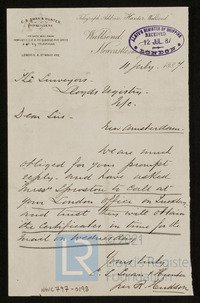 Telegraphic Address, Hunter, Wallsend.
C. S. SWAN & HUNTER
LLOYD'S REGISTER OF SHIPPING
RECEIVED
12 JUL. 87
LONDON
Wallsend
Newcastle
11 July 1887
The Surveyors
Lloyds Register,
Dear Sirs
New Amsterdam
We are much
obliged for your prompt
reply and have asked
Messrs Sproston to call at
your London office on Tuesday
and trust they will obtain
the Certificates in time for the
mail on Wednesday
Yours truly
C. S. Swan & Hunter
HNL797-0198